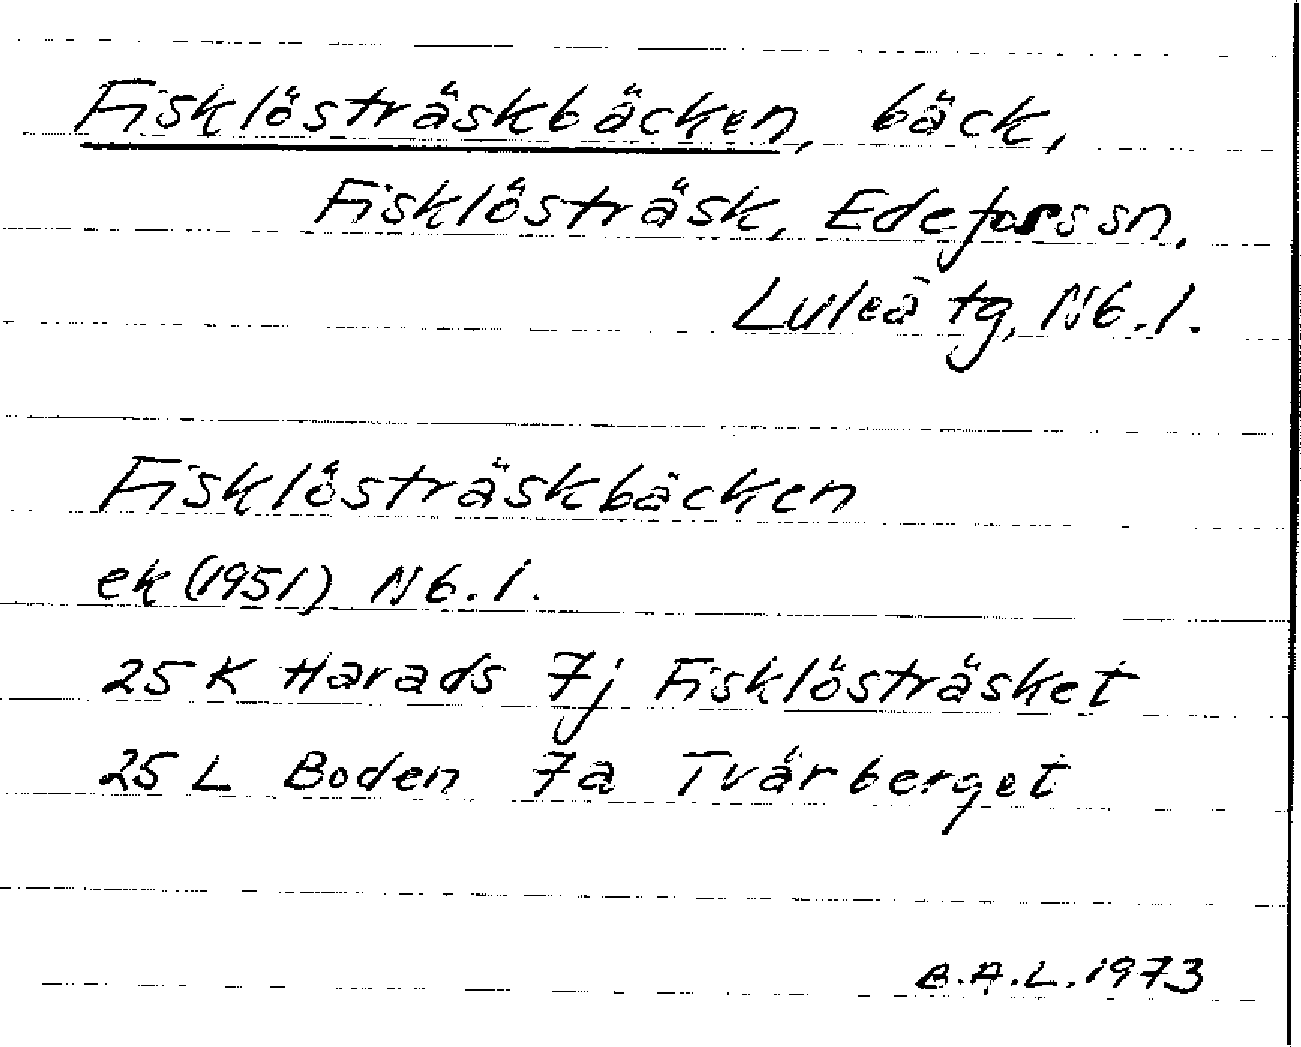 Fisklösträskbäcken, bäck,
Fisklösträsk, Edefors sn,
Luleå tg, Nb. l.
Fisklösträskbäcken
ek (1951) Nb. l.
25 K Harads 7j Fisklösträsket
25 L Boden 7a Tvärberget
B.A.L. 1973